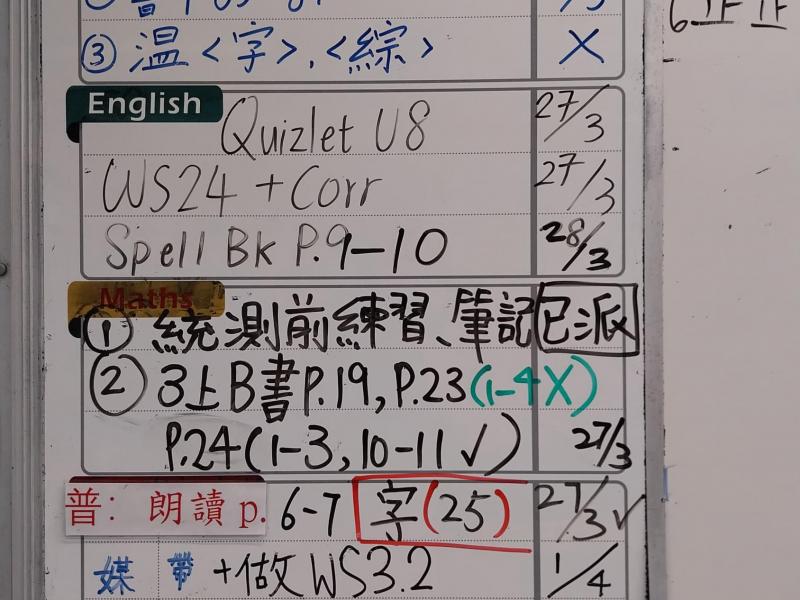 ③ 温〈字〉,〈綜〉 X
English
Quizlet U8 27/3
WS24 + Corr 27/3
Spell Bk P.9-10 28/3
Maths
① 統測前練習、筆記 已派
② 3上B書P.19, P.23 (1-4 X)
P.24 (1-3, 10-11 ✓) 27/3
普: 朗讀 p. 6-7 字(25) 27/3 ✓
媒 帶 + 做 WS3.2 1/4
6正正